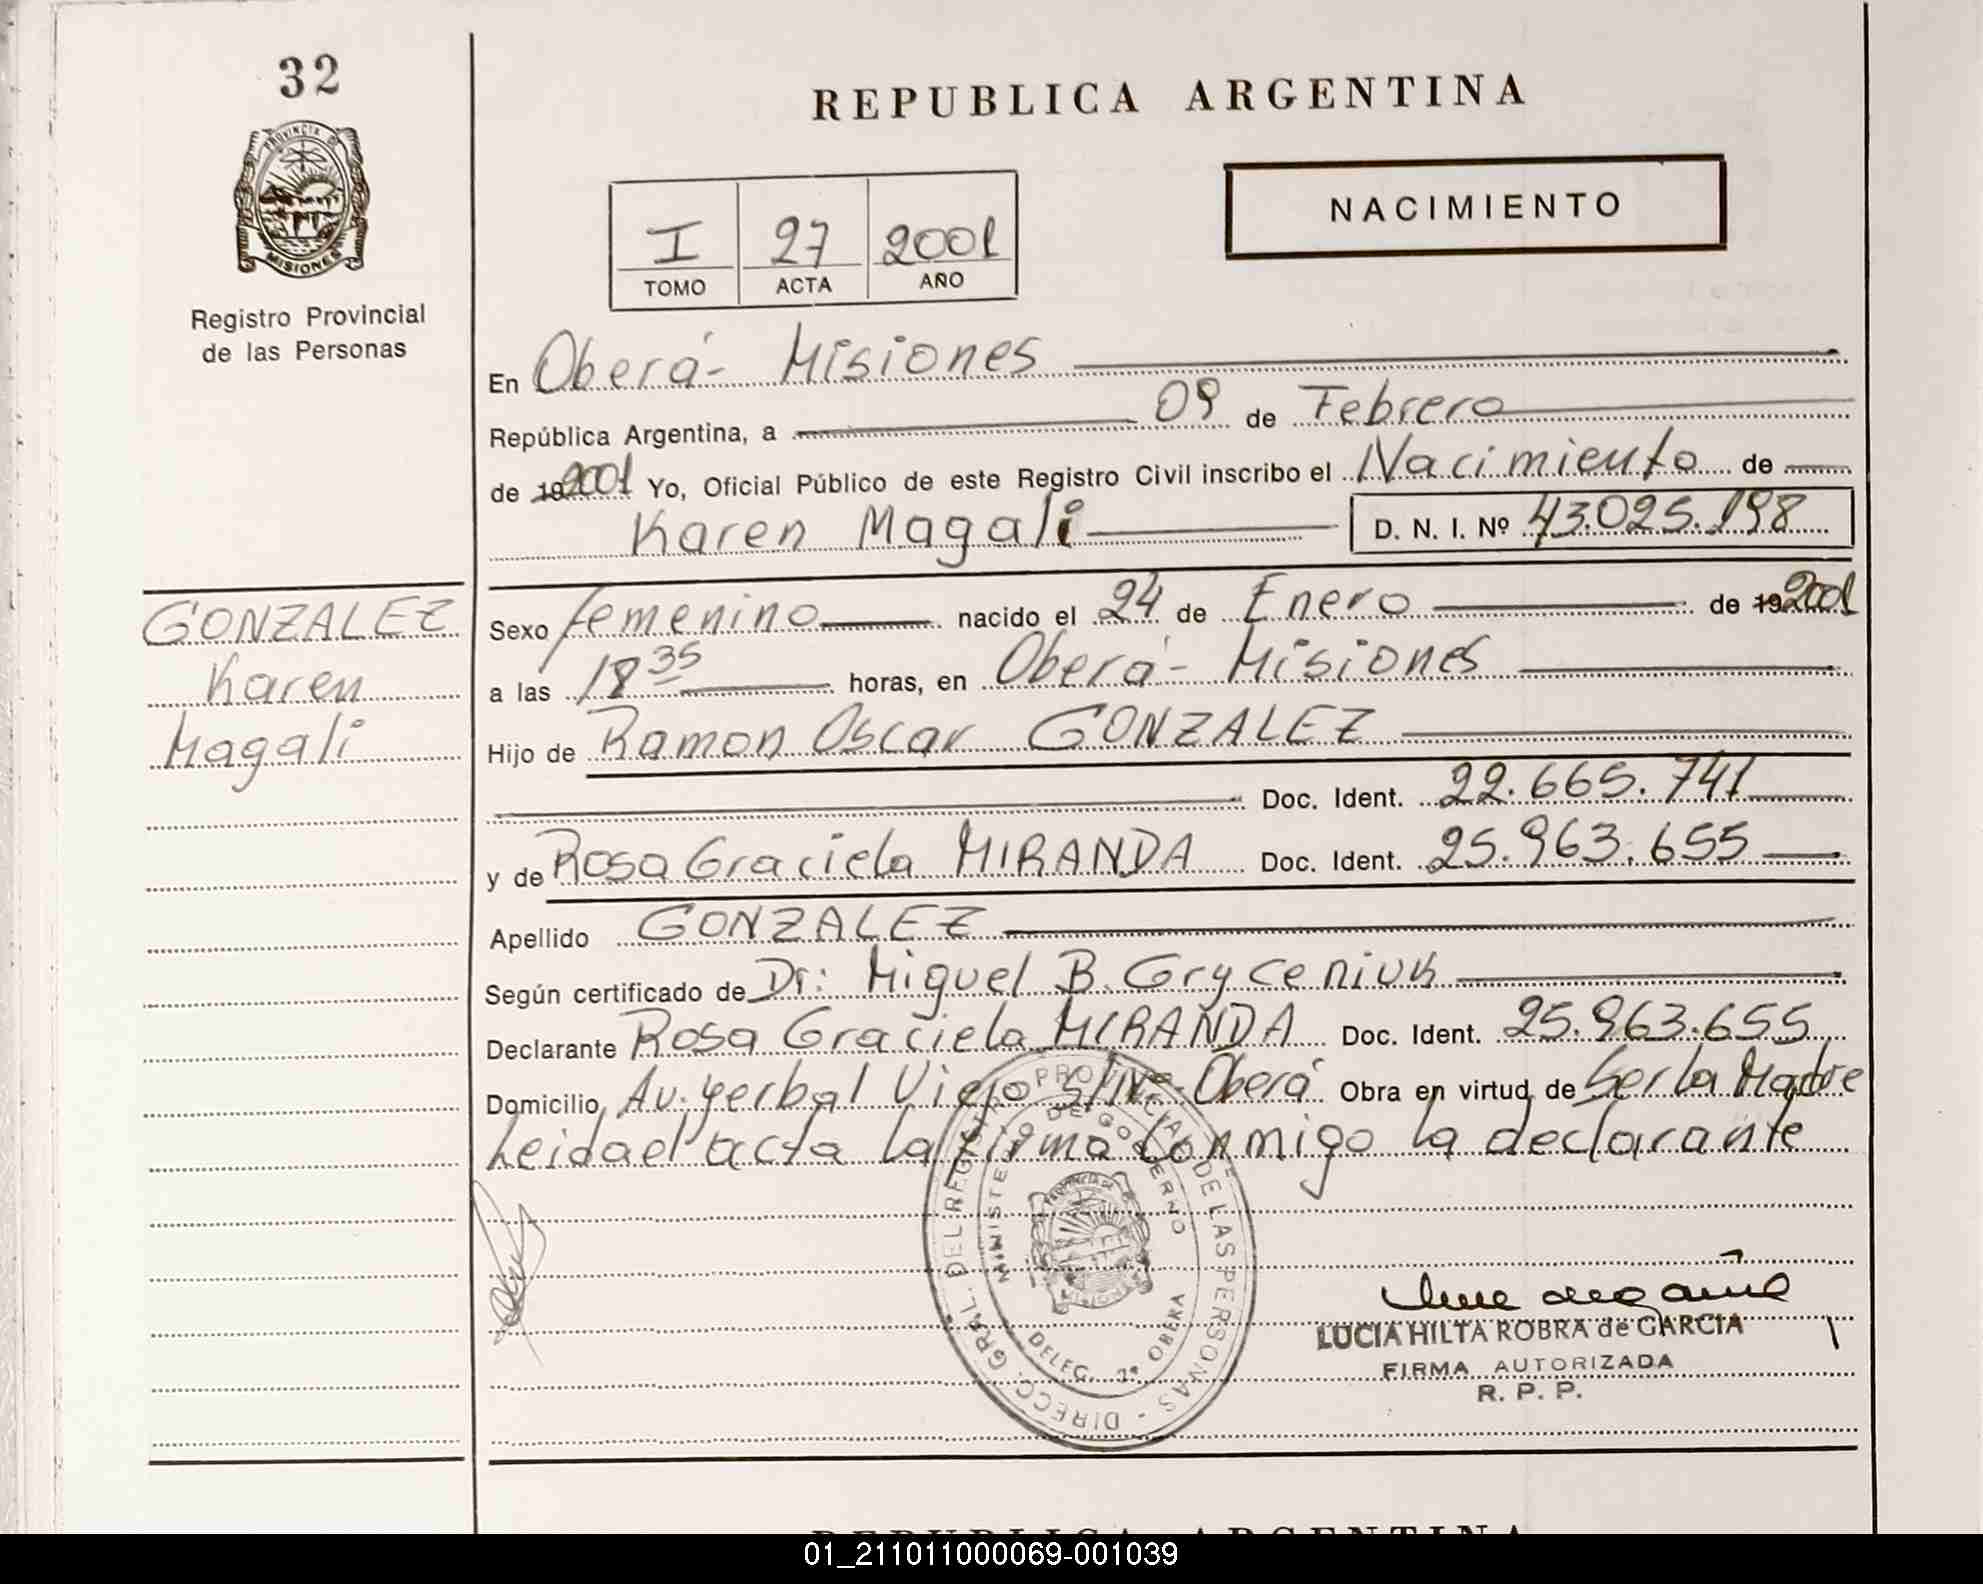 32
REPUBLICA ARGENTINA
PROVINCIA DE
MISIONES
Registro Provincial
de las Personas
NACIMIENTO
I 27 2001
TOMO ACTA AÑO
En Oberá - Misiones
República Argentina, a 09 de Febrero
de 19 2001 Yo, Oficial Público de este Registro Civil inscribo el Nacimiento de
Karen Magali D. N. I. Nº 43.025.198
GONZALEZ
Karen
Magali
Sexo femenino nacido el 24 de Enero de 19 2001
a las 18 35 horas, en Oberá - Misiones
Hijo de Ramon Oscar GONZALEZ
Doc. Ident. 22.665.741
y de Rosa Graciela MIRANDA Doc. Ident. 25.963.655
Apellido GONZALEZ
Según certificado de Dr: Miguel B. Gryceniuk
Declarante Rosa Graciela MIRANDA Doc. Ident. 25.963.655
Domicilio Av. Yerbal Viejo S/Nº - Oberá Obra en virtud de Ser la Madre
Leida el acta la firma conmigo la declarante
DIRECC. GRAL. DEL REGISTRO PROVINCIAL DE LAS PERSONAS -
MINISTERIO DE GOBIERNO
DELEG. 2ª OBERA
LUCIA HILTA ROBRA de GARCIA
FIRMA AUTORIZADA
R. P. P.
REPUBLICA ARGENTINA
01_211011000069-001039